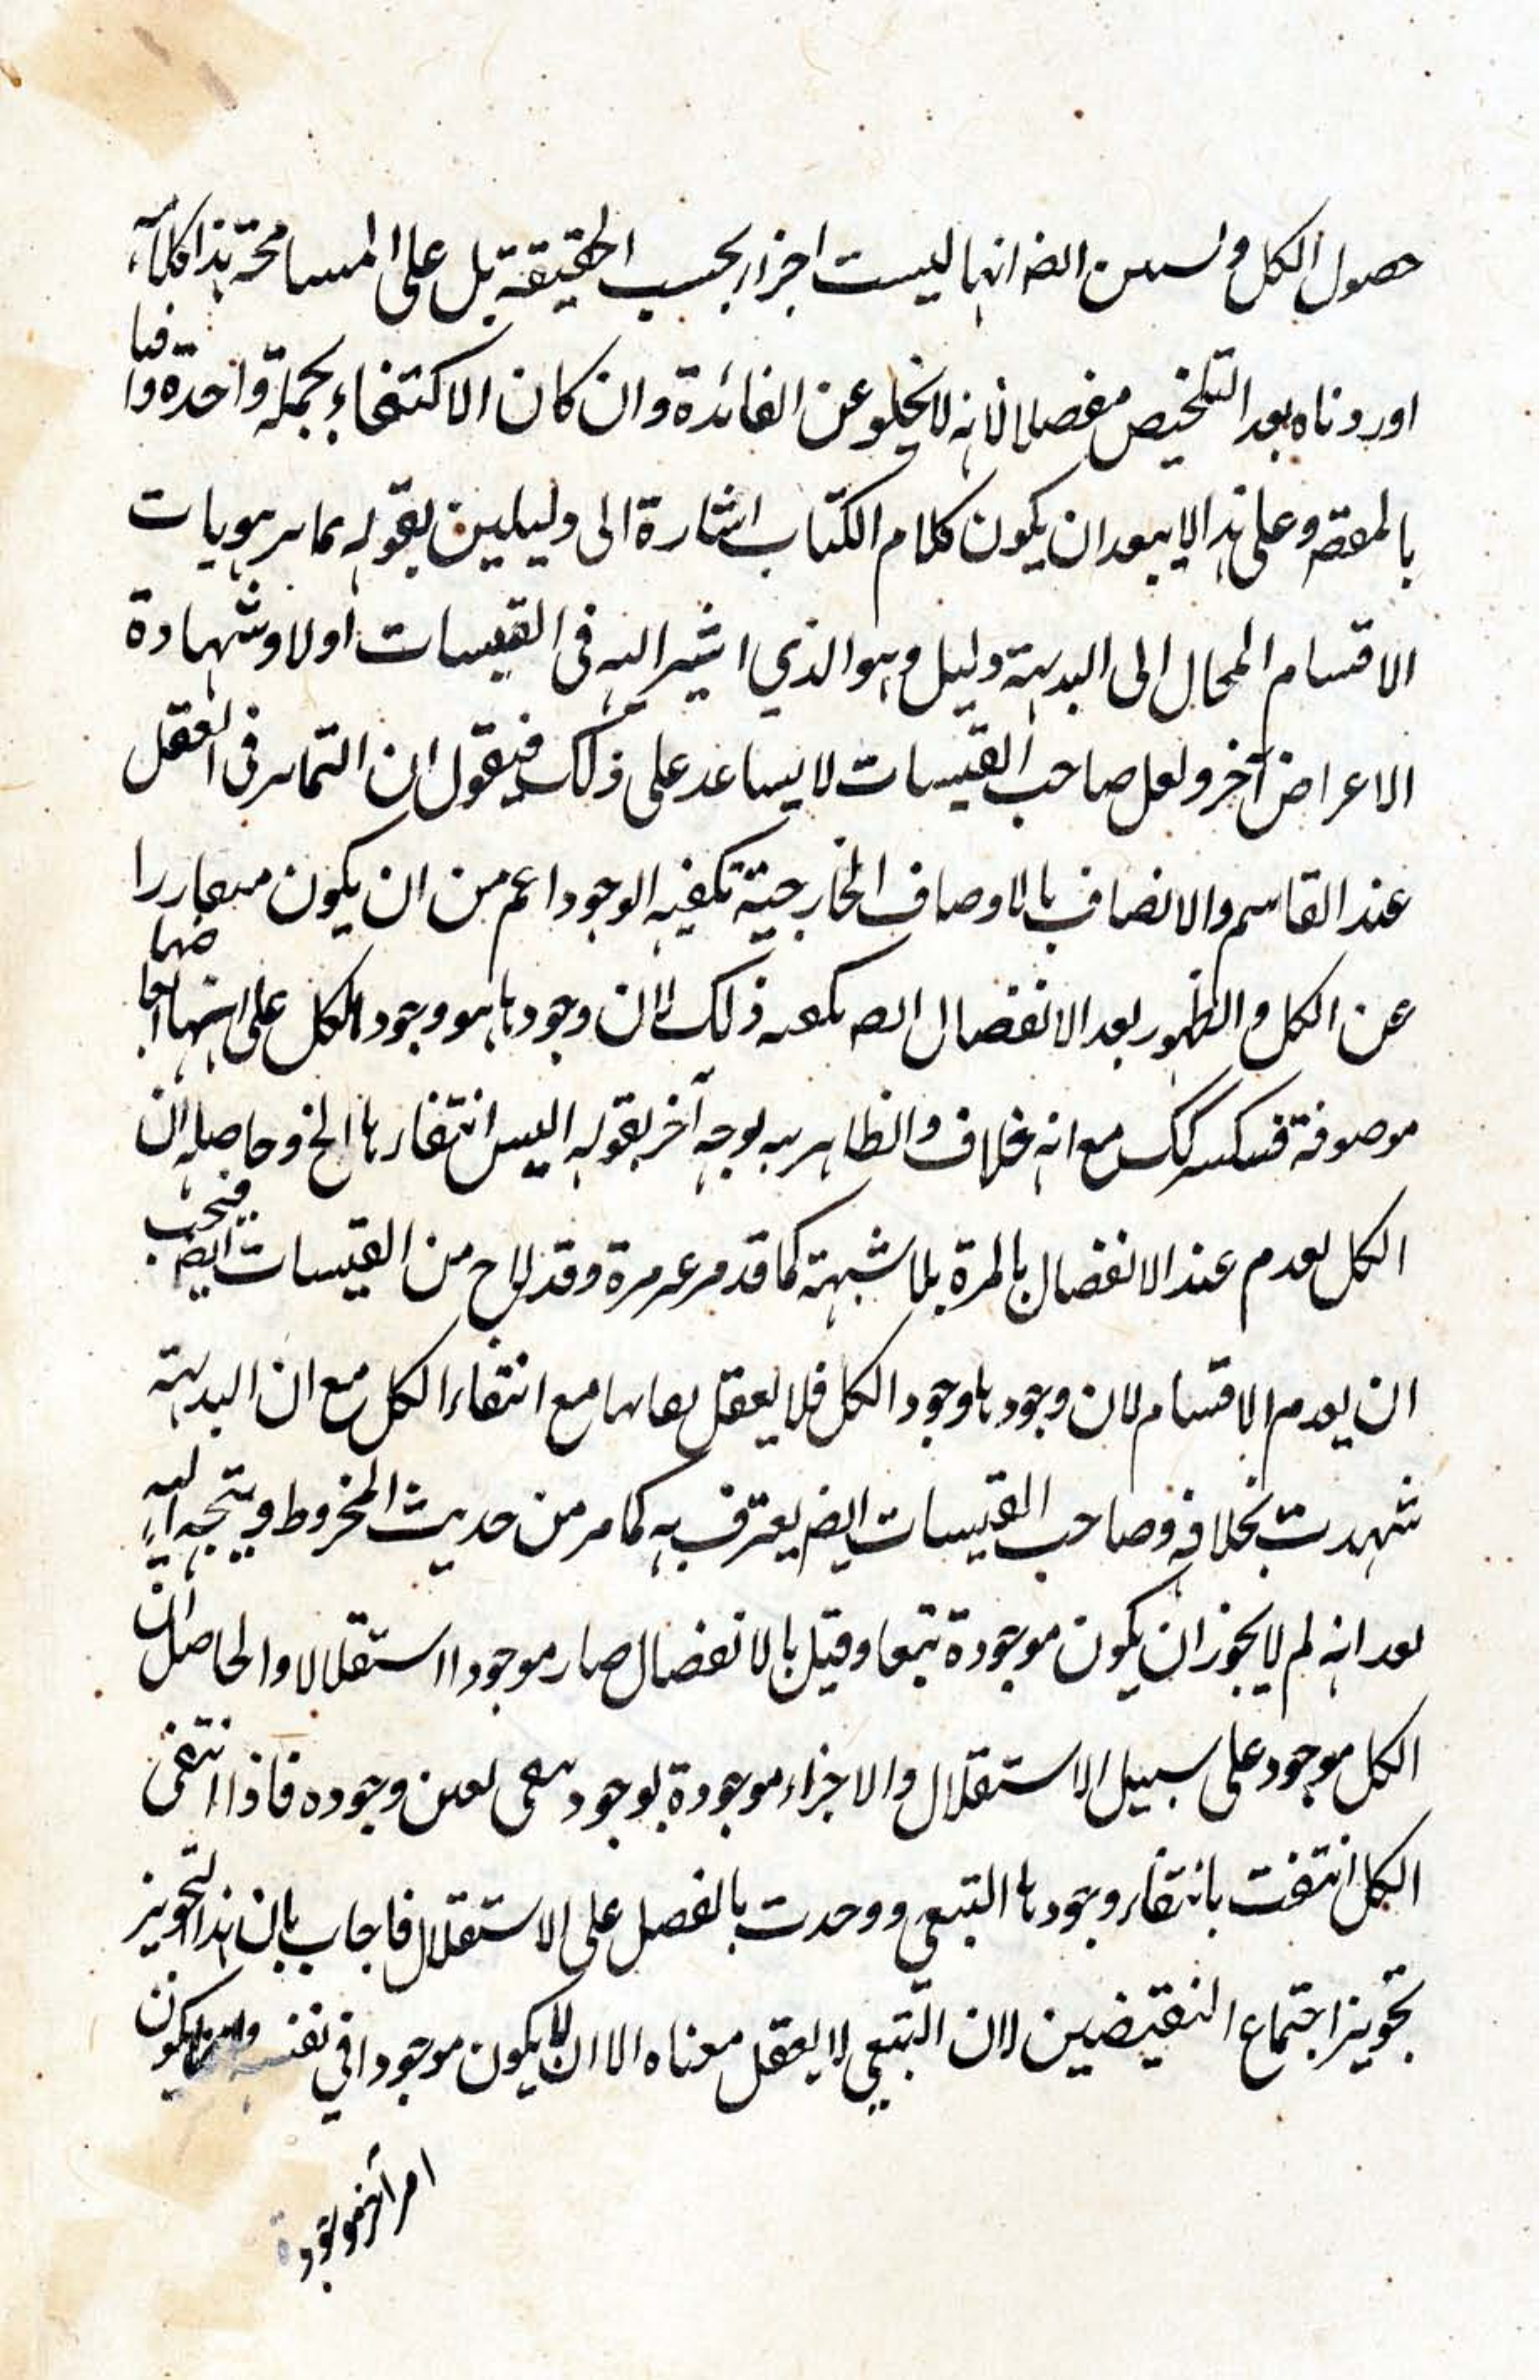 حصول الكل و انها ليست اجزاء بحسب الحقيقة بل على المسامحة هذا كلامه
اوردناه بعد التلخيص مفصلا لانه لا يخلو عن الفائدة وان كان الاكتفاء بجملة واحدة وافيا
بالمقصـ وعلى هذا لا يبعد ان يكون كلام الكتاب اشارة الى دليلين بقوله تمايز هويات
الاقسام المحال الى البديهة دليل وهو الذي اشير اليه فى القبسات اولا وشهادة
الاعراض آخر ولعل صاحب القبسات لا يساعد على ذلك فيقول ان التمايز فى العقل
عند القاسم والاتصاف بالاوصاف الخارجية تكفيه الوجود اعم من ان يكون
عن الكل والظهور بعد الانفصال ذلك لان وجودها هو وجود الكل على انها
موصوفة مع انه خلاف والظاهر بوجه آخر بقوله اليس انتفاءها الخ وحاصله ان
الكل يعدم عند الانفصال بالمرة بلا شبهة كما قد مر غير مرة وقد لاح من القبسات ايضـ فيجب
ان يعدم الاقسام لان وجودها وجود الكل فلا يعقل بقاءها مع انتفاء الكل مع ان البديهة
شهدت بخلافه وصاحب القبسات ايضـ يعترف به كما مر من حديث المخروط ويتجه اليه
بعد انه لم لا يجوز ان يكون موجودة تبعا وقيل بالانفصال صار موجودا استقلالا والحاصل ان
الكل موجود على سبيل الاستقلال والاجزاء موجودة بوجود تبعى بعين وجوده فاذا انتفى
الكل انتفت بانتفاء وجودها التبعى ووجدت بالفصل على الاستقلال فاجاب بان هذا التجويز
تجويز اجتماع النقيضين لان التبعي لا يعقل معناه الا ان لا يكون موجودا في نفسه يكون
امر آخر موجودة